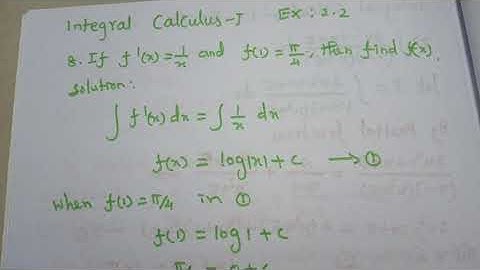 Integral Calculus-I Ex: 2.2
8. If f'(x)=1/x and f(1)=π/4, than find f(x).
Solution:
∫ f'(x) dx = ∫ 1/x dx
f(x) = log|x| + c → ①
when f(1)=π/4 in ①
f(1) = log 1 + c
π/4 = 0 + c